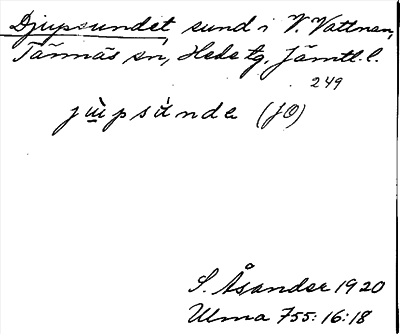 Djupsundet, sund i V. Vattnan,
Tännäs sn, Hede tg, Jämtl. l.
249
jùpsúndə (JO)
S. Åsander 1920
Ulma 755:16:18